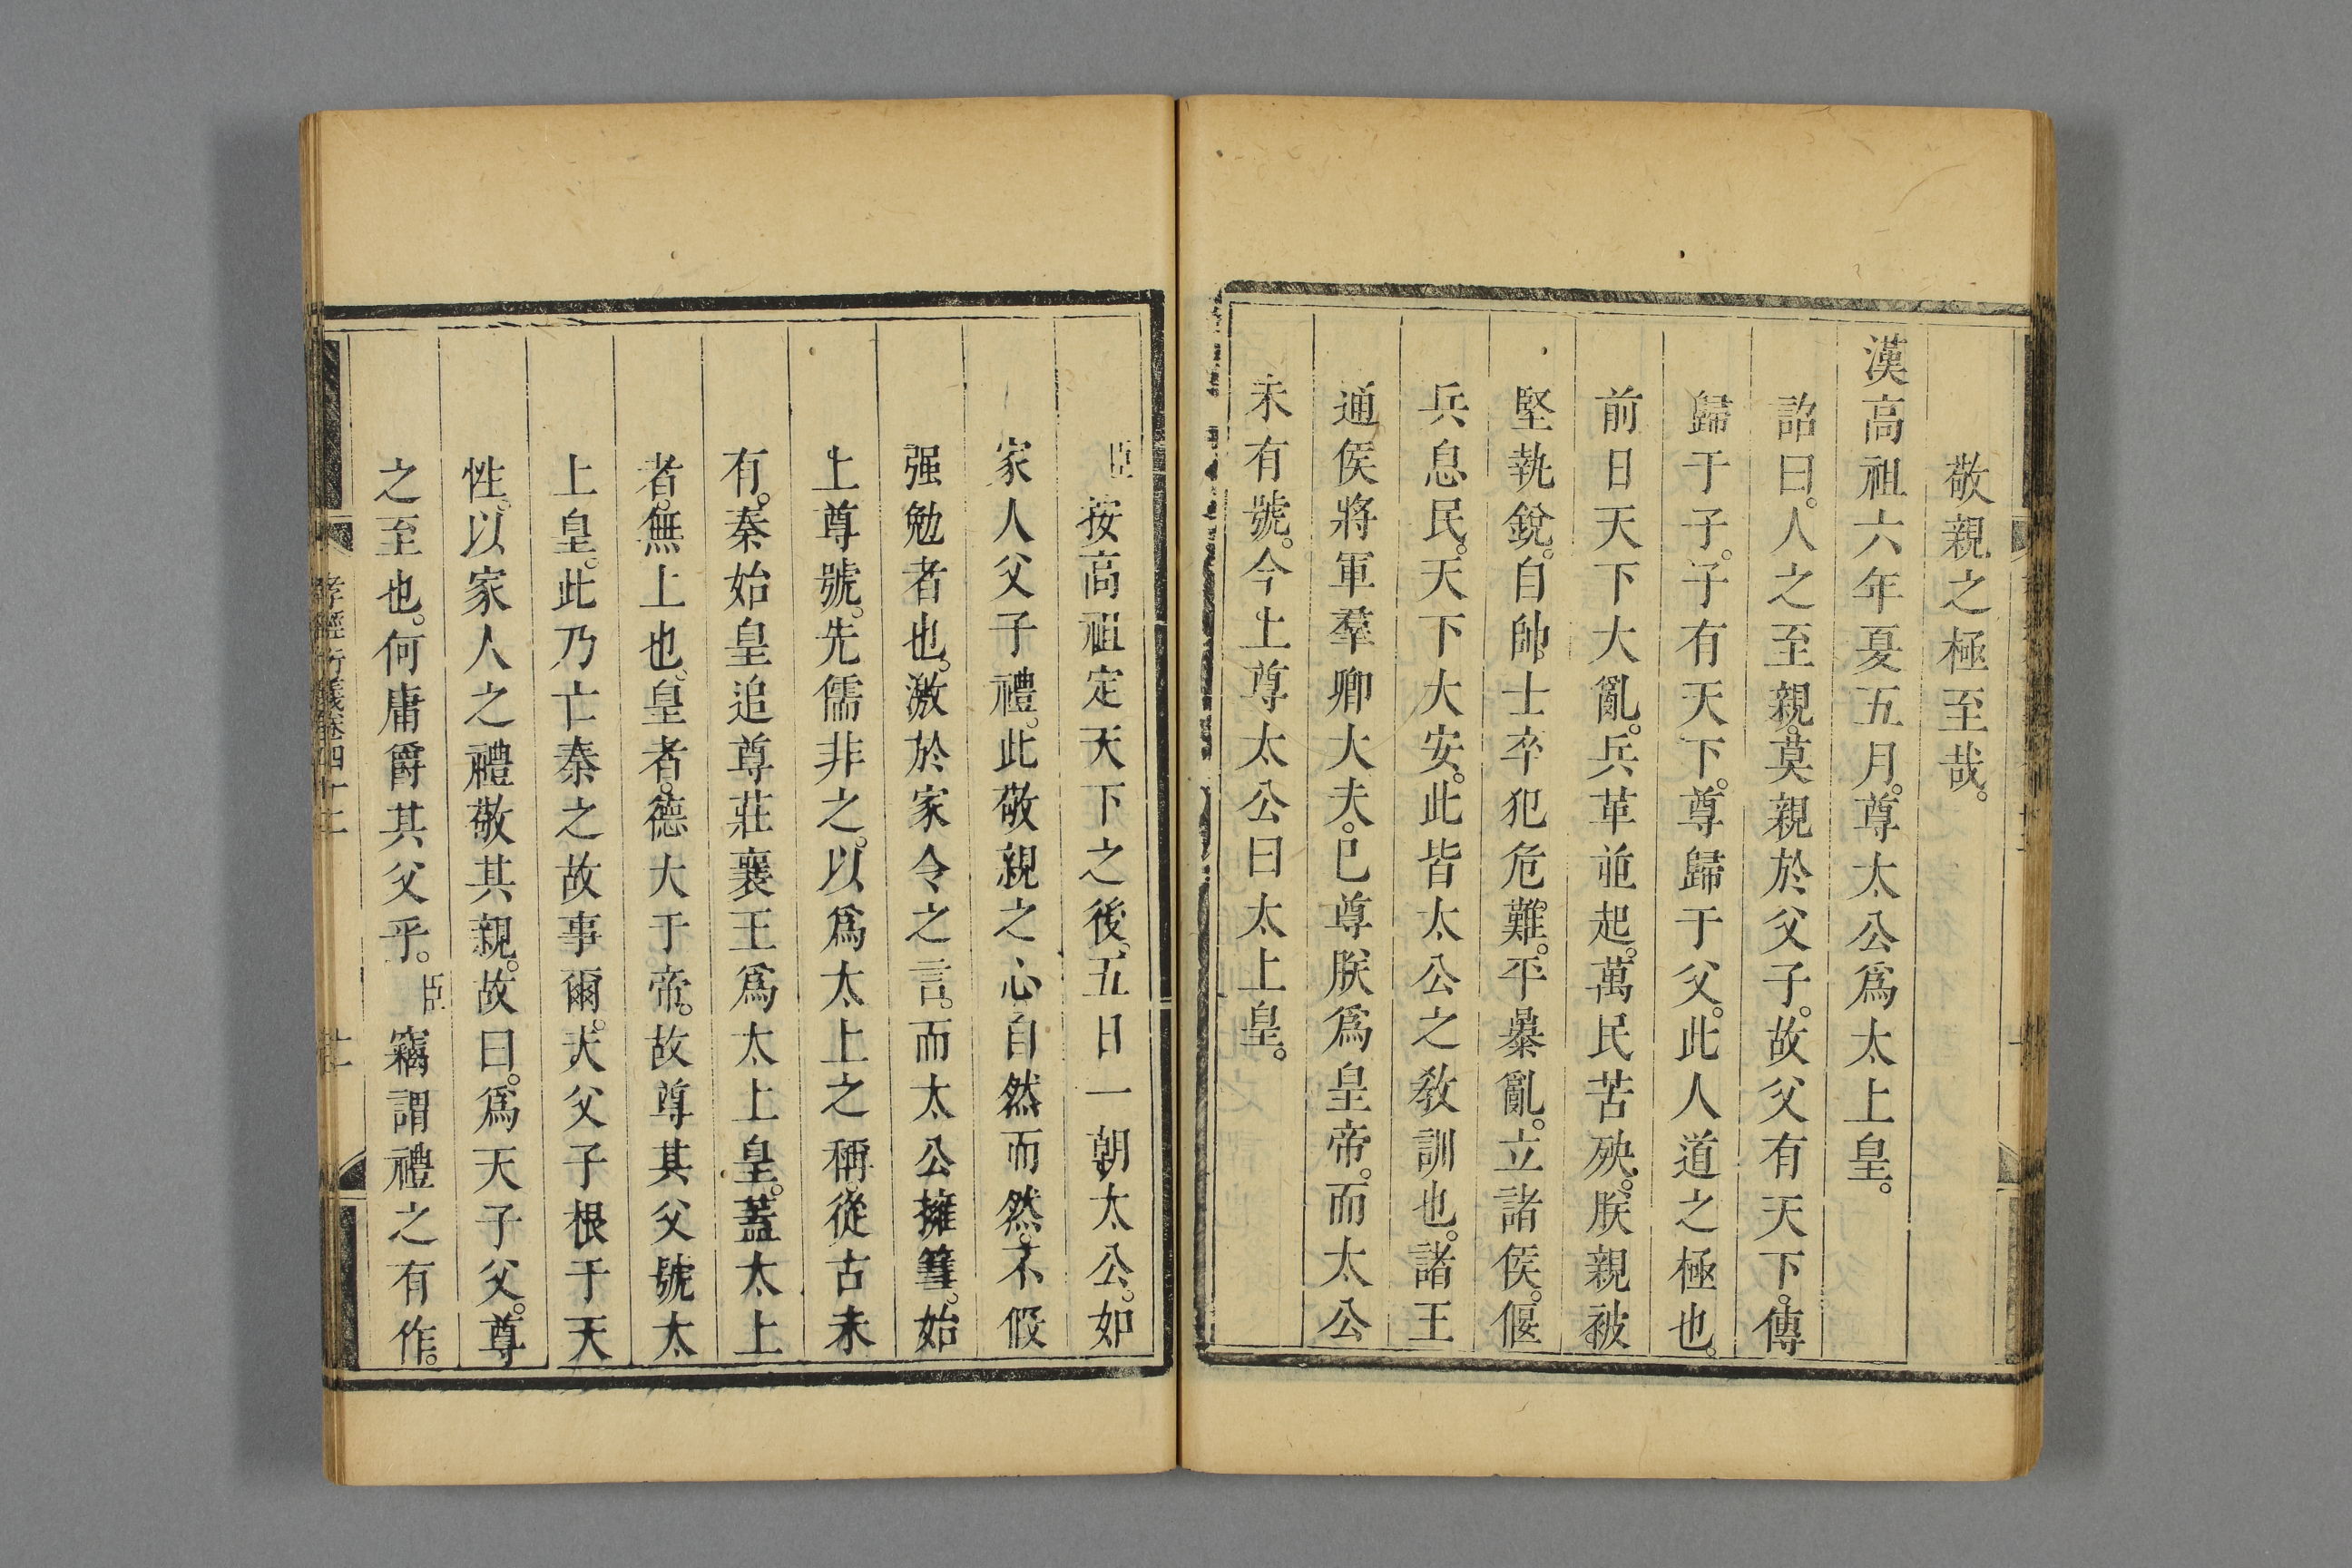 敬親之極至哉。
漢高祖六年夏五月。尊太公爲太上皇。
詔曰。人之至親。莫親於父子。故父有天下。傳
歸于子。子有天下。尊歸于父。此人道之極也。
前日天下大亂。兵革並起。萬民苦殃。朕親被
堅執銳。自帥士卒犯危難。平暴亂。立諸侯。偃
兵息民。天下大安。此皆太公之敎訓也。諸王
通侯將軍羣卿大夫。已尊朕爲皇帝。而太公
未有號。今上尊太公曰太上皇。
臣按高祖定天下之後。五日一朝太公。如
家人父子禮。此敬親之心自然而然。不假
强勉者也。激於家令之言。而太公擁篲。始
上尊號。先儒非之。以爲太上之稱。從古未
有。秦始皇追尊莊襄王爲太上皇。蓋太上
者。無上也。皇者。德大于帝。故尊其父號太
上皇。此乃亡秦之故事爾。夫父子根于天
性。以家人之禮敬其親。故曰。爲天子父。尊
之至也。何庸爵其父乎。臣竊謂禮之有作。
孝經衍義卷四十二